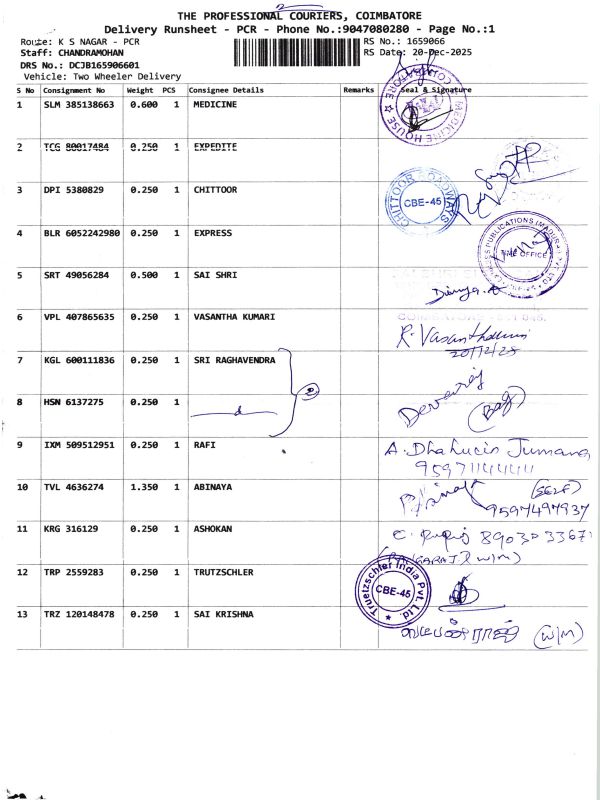 THE PROFESSIONAL COURIERS, COIMBATORE
Delivery Runsheet - PCR - Phone No.:9047080280 - Page No.:1
Route: K S NAGAR - PCR
RS No.: 1659066
Staff: CHANDRAMOHAN
RS Date: 20-Dec-2025
DRS No.: DCJB165906601
Vehicle: Two Wheeler Delivery
S No Consignment No Weight PCS Consignee Details Remarks Seal & Signature
1 SLM 385138663 0.600 1 MEDICINE
MEDICINE HOUSE
2 TCG 80017484 0.250 1 EXPEDITE
3 DPI 5380829 0.250 1 CHITTOOR
CHITTOOR ROADWAYS
CBE-45
4 BLR 6052242980 0.250 1 EXPRESS
PUBLICATIONS (MADURAI)
TIME OFFICE
5 SRT 49056284 0.500 1 SAI SHRI
Divya.A
6 VPL 407865635 0.250 1 VASANTHA KUMARI
R. Vasanthakumari
20/12/25
7 KGL 600111836 0.250 1 SRI RAGHAVENDRA
Devaraj
8 HSN 6137275 0.250 1
(Bag)
9 IXM 509512951 0.250 1 RAFI
A. Jumana
10 TVL 4636274 1.350 1 ABINAYA
(SELF)
9597497937
11 KRG 316129 0.250 1 ASHOKAN
(W/M)
12 TRP 2559283 0.250 1 TRUTZSCHLER
Truetzschler India Pvt. Ltd.
CBE-45
13 TRZ 120148478 0.250 1 SAI KRISHNA
(W/M)